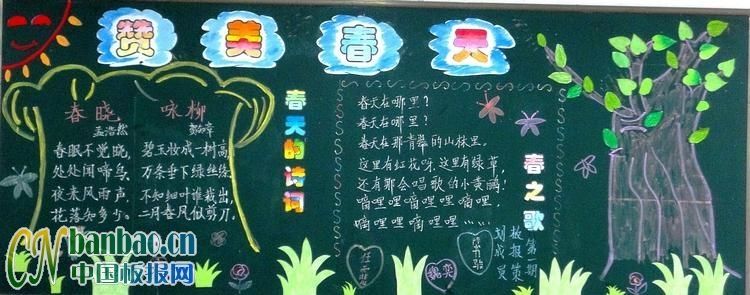 赞美春天
春晓
孟浩然
春眠不觉晓,
处处闻啼鸟。
夜来风雨声,
花落知多少。
咏柳
贺知章
碧玉妆成一树高,
万条垂下绿丝绦。
不知细叶谁裁出,
二月春风似剪刀。
春天的诗词
春天在哪里?
春天在哪里?
春天在那青翠的山林里。
这里有红花呀,这里有绿草,
还有那会唱歌的小黄鹂!
嘀哩哩嘀哩嘀哩哩,
嘀哩哩嘀哩哩……
春之歌
第一期
板报策
划成员
魏奕
CNbanbao.cn
中国板报网